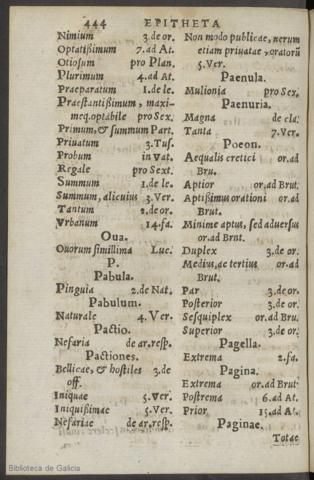 444 EPITHETA
Nimium 3.de or.
Optatißimum 7.ad At.
Otiosum pro Plan.
Plurimum 4.ad At.
Praeparatum 1.de le.
Praestantißimum, maxi-
meq.optabile pro Sex.
Primum,& summum Part.
Priuatum 3.Tus.
Probum in Vat.
Regale pro Sext.
Summum 1.de le.
Summum, alicuius 3.Ver.
Tantum 2.de or.
Vrbanum 14.fa.
Oua.
Ouorum simillima Luc.
P.
Pabula.
Pinguia 2.de Nat.
Pabulum.
Naturale 4. Ver.
Pactio.
Nefaria de ar.resp.
Pactiones.
Bellicae, & hostiles 3.de
off.
Iniquae 5.Ver.
Iniquißimae 5.Ver.
Nefariae de ar.resp.
Non modo publicae, uerum
etiam priuatae, oratorũ
5.Ver.
Paenula.
Mulionia pro Sex.
Paenuria.
Magna de cla.
Tanta 7.Ver.
Poeon.
Aequalis cretici or.ad
Bru.
Aptior or.ad Brut.
Aptißimus orationi or.ad
Brut.
Minime aptus, sed aduersus
or.ad Brut.
Duplex 3.de or.
Medius, ac tertius or.ad
Brut.
Par 3.de or.
Posterior 3.de or.
Sesquiplex or.ad Bru.
Superior 3.de or.
Pagella.
Extrema 2.fa.
Pagina.
Extrema or.ad Brut.
Postrema 6.ad At.
Prior 15.ad At.
Paginae.
Totae
Biblioteca de Galicia